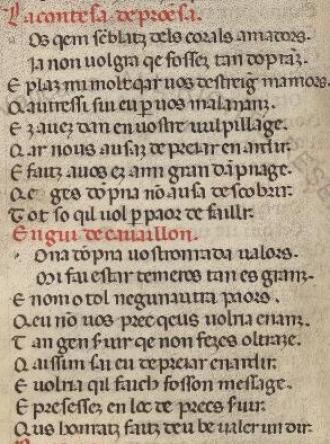 La contesa de proēsa.
Os qem sēblatz dels corals amadors.
Ja non volgra qe fossez tan doptaz.
E plaz mi molt qar vos destreing mamors.
Qautressi sui eu ꝑ vos malananz.
Ez avez dan en vostre vulpillage.
Qar nous ausaz de preiar en ardir.
E faitz avos ez am gran dāpnage.
Qe ges dōpna nō ausa descobrir.
Tot so qil vol ꝑ paor de faillir.
En gui de cavaillon.
Ona dōpna vostronrada valors.
Mi fai estar temeros tan es granz.
E nom o tol negunautra paors.
Qeu nō vos prec qeus volria enanz.
Tan gen servir qe non fezes oltraze.
Qaissim sai eu de preiar enardir.
E volria qil faich fosson message.
E presessez en loc de precs servir.
Qus honratz faitz deu be valer un dir.